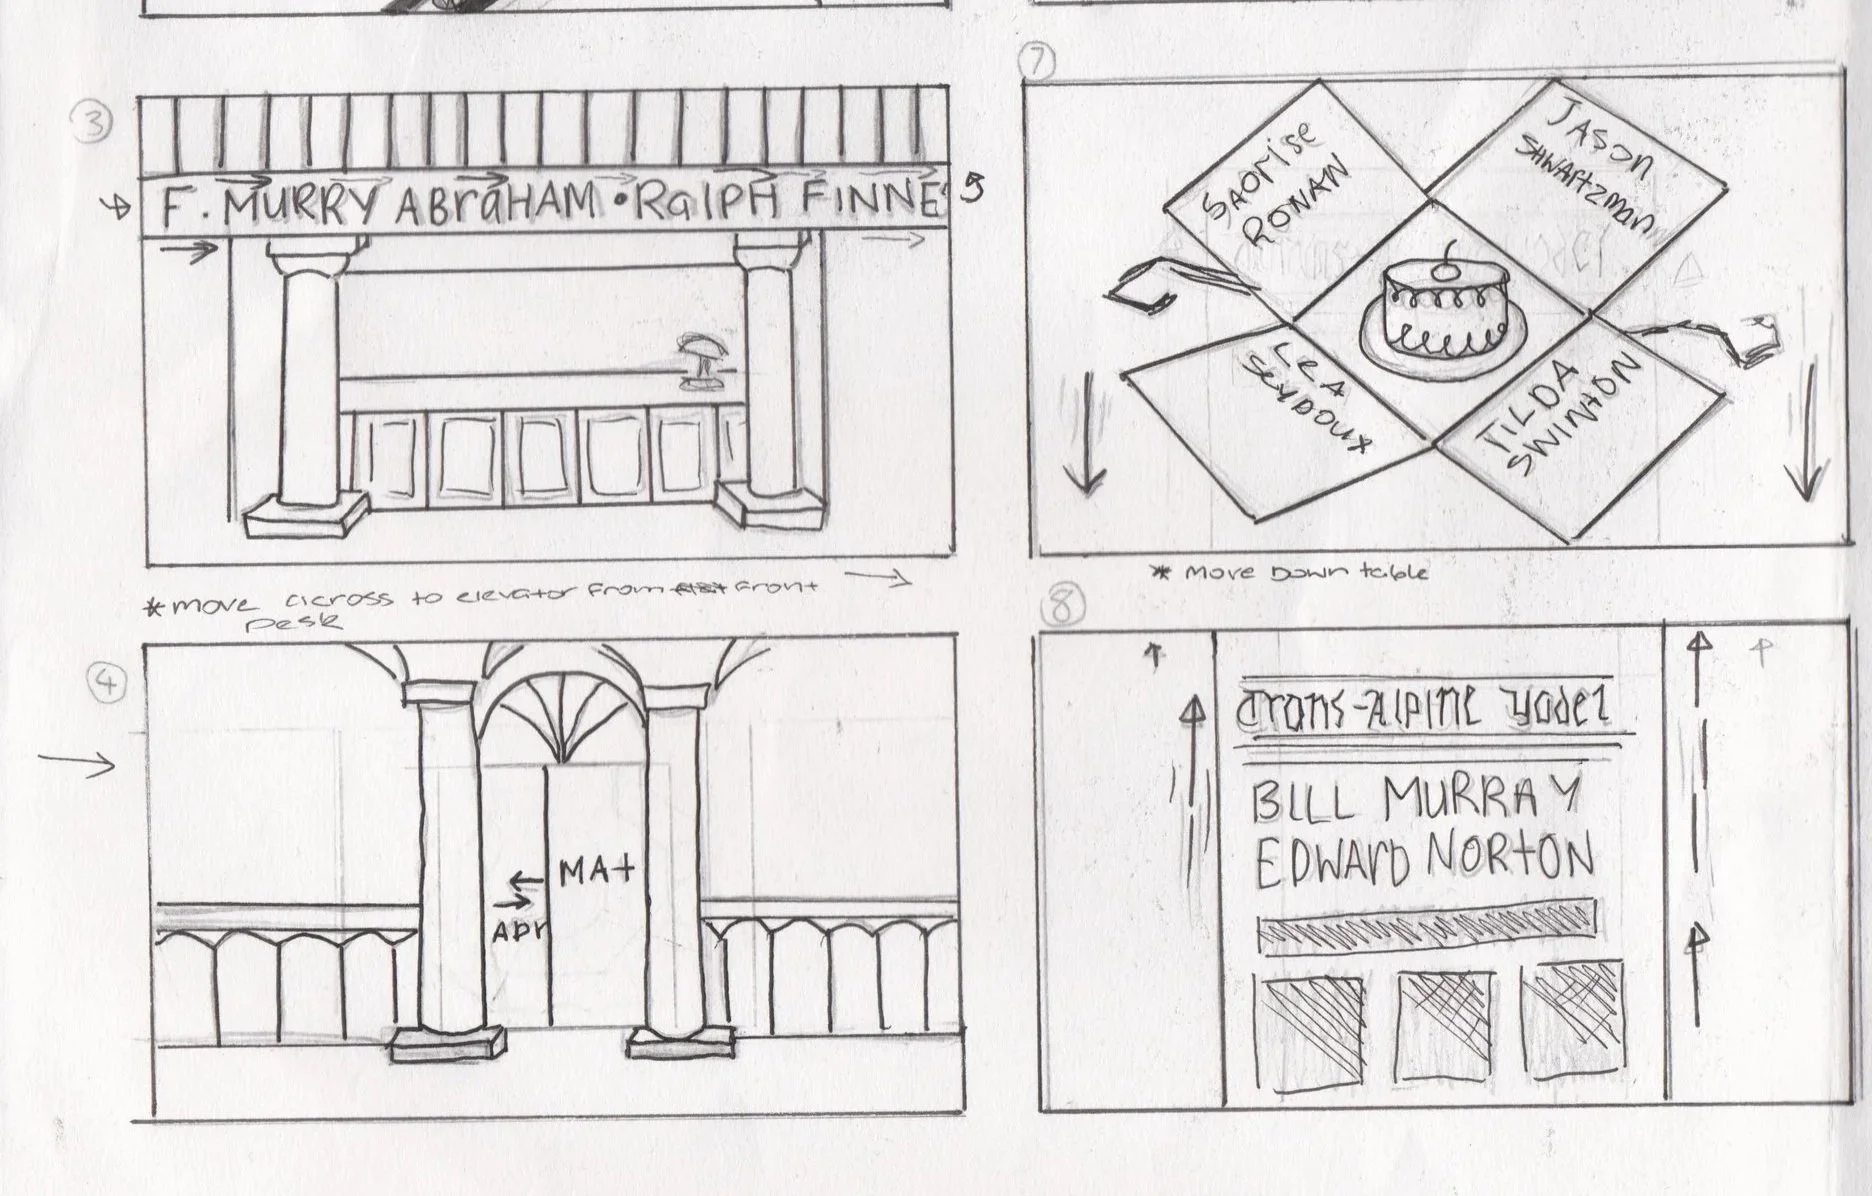 3
F. MURRY ABraHAM • RalPH FINNE
* move across to elevator From Front
Desk
4
MAt
ADr
7
Saorise
RONAN
JASON
SHWARTZMAN
LEA
SEYDOUX
TILDA
SWINTON
* Move Down table
8
Trans-Alpine Yodel
BILL MURRAY
EDWARD NORTON